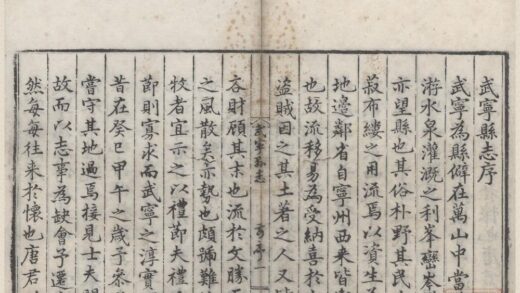 武寧縣志序
武寧為縣僻在萬山中當
游水泉灌溉之利峯巒岑
亦望縣也其俗朴野其民
菽布縷之用流焉以資生
地邊鄰省自寧州西來皆
也故流移易為受納喜於
盜賊因之其土著之人又
吝財顧其末也流於文勝
之風散矣亦勢也頗號難
牧者宜示之以禮節夫禮
節則寡求而武寧之淳實
昔在癸巳甲午之歲予叅
嘗守其地過焉接見士夫
故而以志事為缺會予遷
然每每往来於懷也唐君
武寧縣志